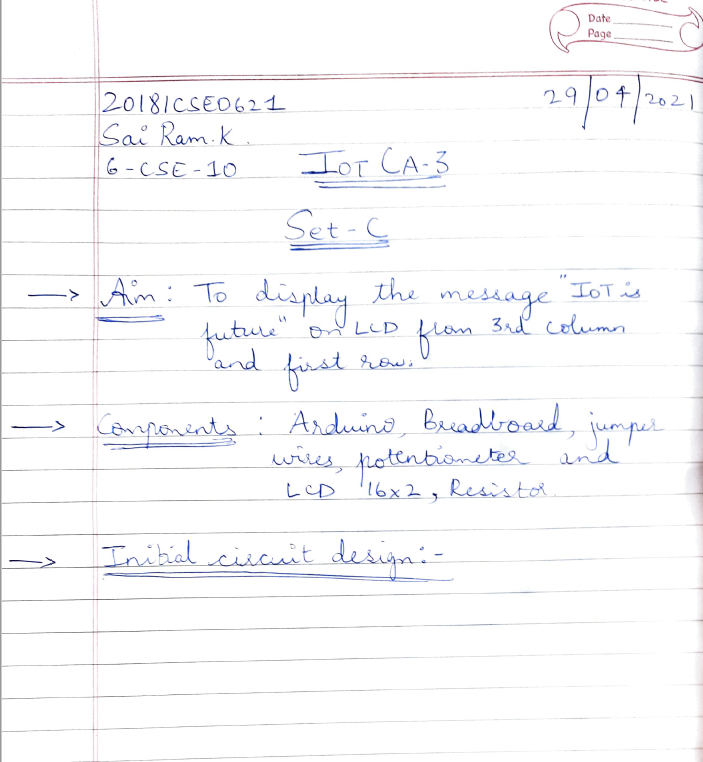 Date
Page
20181CSE0621
29/04/2021
Sai Ram.K.
6-CSE-10
IOT CA-3
Set-C
→ Aim: To display the message "IoT is
future" on LCD from 3rd column
and first row.
→ Components: Arduino, Breadboard, jumper
wires, potentiometer and
LCD 16x2, Resistor.
→ Initial circuit design:-